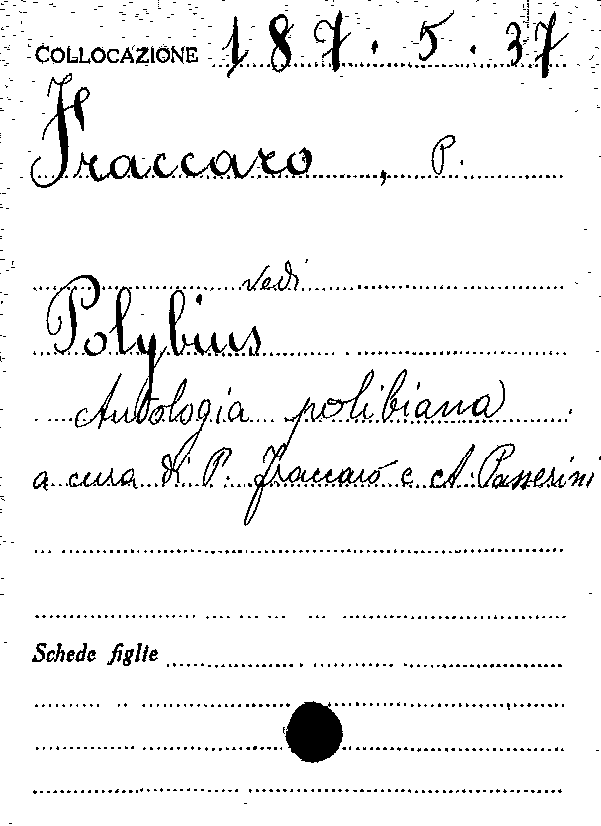 COLLOCAZIONE 187.5.37
Fraccaro, P.
vedi
Polybius
Antologia polibiana
a cura di P. Fraccaro e A. Passerini
Schede figlie